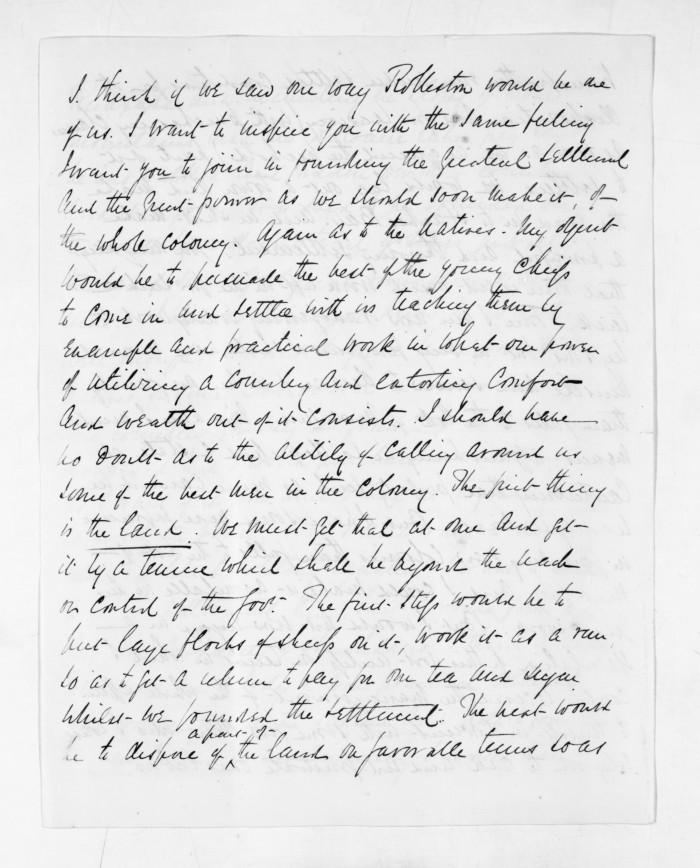 I think if we saw our way Rolleston would be one
of us. I want to inspire you with the same feeling
I want you to join in founding the Greatest Settlement
and the Great power as we should soon make it, of
the whole colony. Again as to the Natives. My object
would be to persuade the best of the young chiefs
to come in and settle with us teaching them by
example and practical work in what our power
of utilizing a country and extorting comfort
and wealth out of it consists. I should have
no doubt as to the ability of calling around us
some of the best men in the colony. The first thing
is the land. We must get that at once and get
it by a tenure which shall be beyond the reach
or control of the Govt. The first step would be to
put large flocks of sheep on it, work it as a run
so as to get a return to pay for our tea and sugar
whilst we founded the settlement. The next would
be to dispose of a part of the land on favorable terms so as